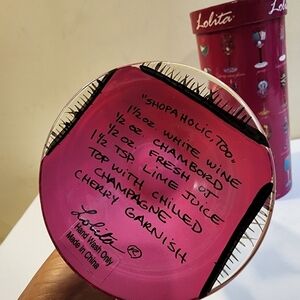 Lolita
"SHOPAHOLIC, TOO.
1½ OZ. WHITE WINE
½ OZ. CHAMBORD
½ OZ. FRESH OJ
1½ TSP. LIME JUICE
TOP WITH CHILLED
CHAMPAGNE.
CHERRY GARNISH
Lolita ®
Hand Wash Only
Made in China